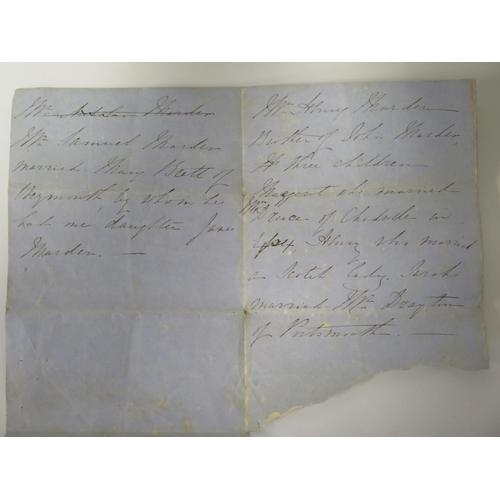 Mr Samuel Marder
married Mary Brett of
Weymouth by whom he
had one daughter Jane
Marder. —
Mr Henry Marder
Brother of John Marder
three children
Margaret who married
Mr of in
Henry who married
a Scotch Lady. Sarah
married Mr Drayton
of Portsmouth. —